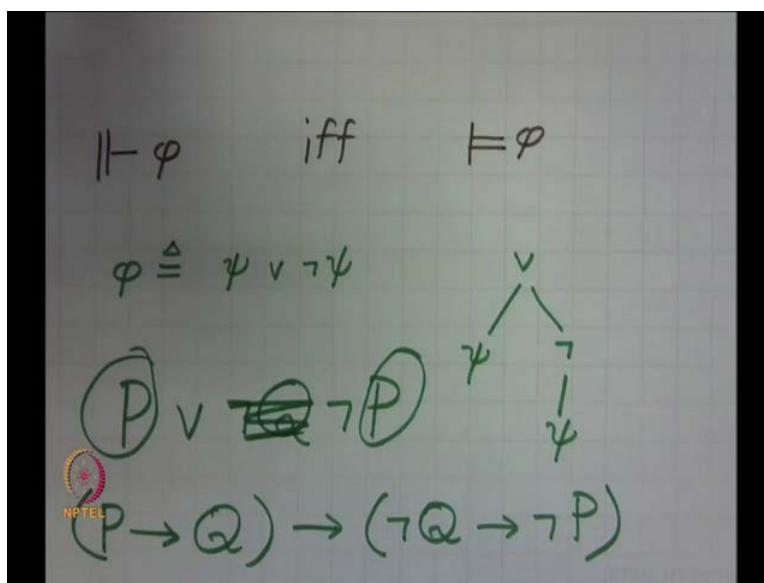 ⊩ φ iff ⊨ φ
φ ≜ ψ ∨ ¬ψ
∨
ψ ¬
ψ
P ∨ ¬P
NPTEL
(P → Q) → (¬Q → ¬P)